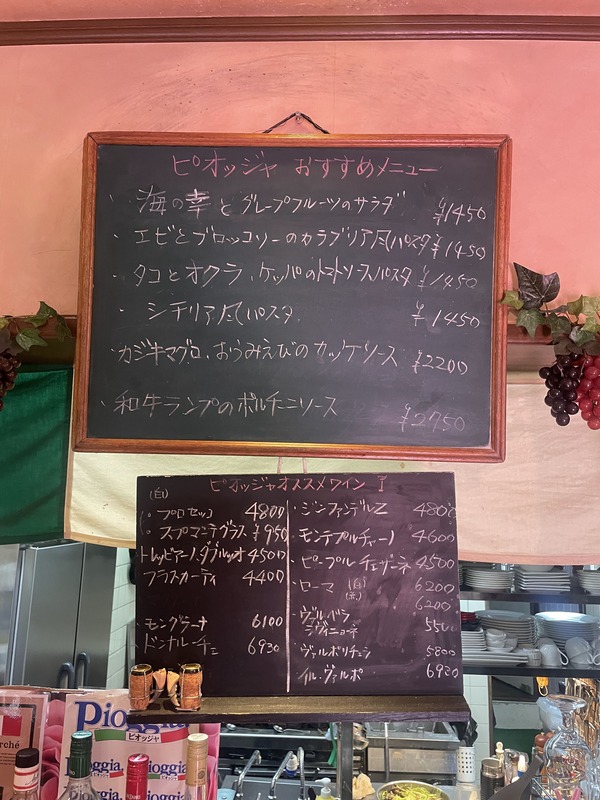 ピオッジャ おすすめメニュー
・海の幸とグレープフルーツのサラダ ¥1450
・エビとブロッコリーのカラブリア風パスタ ¥1450
・タコとオクラ、ケッパのトマトソースパスタ ¥1450
・シチリア風パスタ ¥1450
・カジキマグロ、おうみえびのカッケソース ¥2200
・和牛ランプのポルチーニソース ¥2750
ピオッジャオススメワイン
(白)
・プロセッコ 4800
・スプマンテグラス ¥950
トレッビアーノ・ダブルッツオ 4500
フラスカーティ 4400
・モングラーナ 6100
・ドンナルーチェ 6930
・ジンファンデル 4800
・モンテプルチャーノ 4600
・ピープル チェザーネ 4500
・ローマ (白) 6200
(赤) 6200
・ヴァルポリチェラ 5800
・イル・ヴァルポ 6920
Pioggia
ピオッジャ
ioggia,
Pioggia,
ピオッジャ
rché